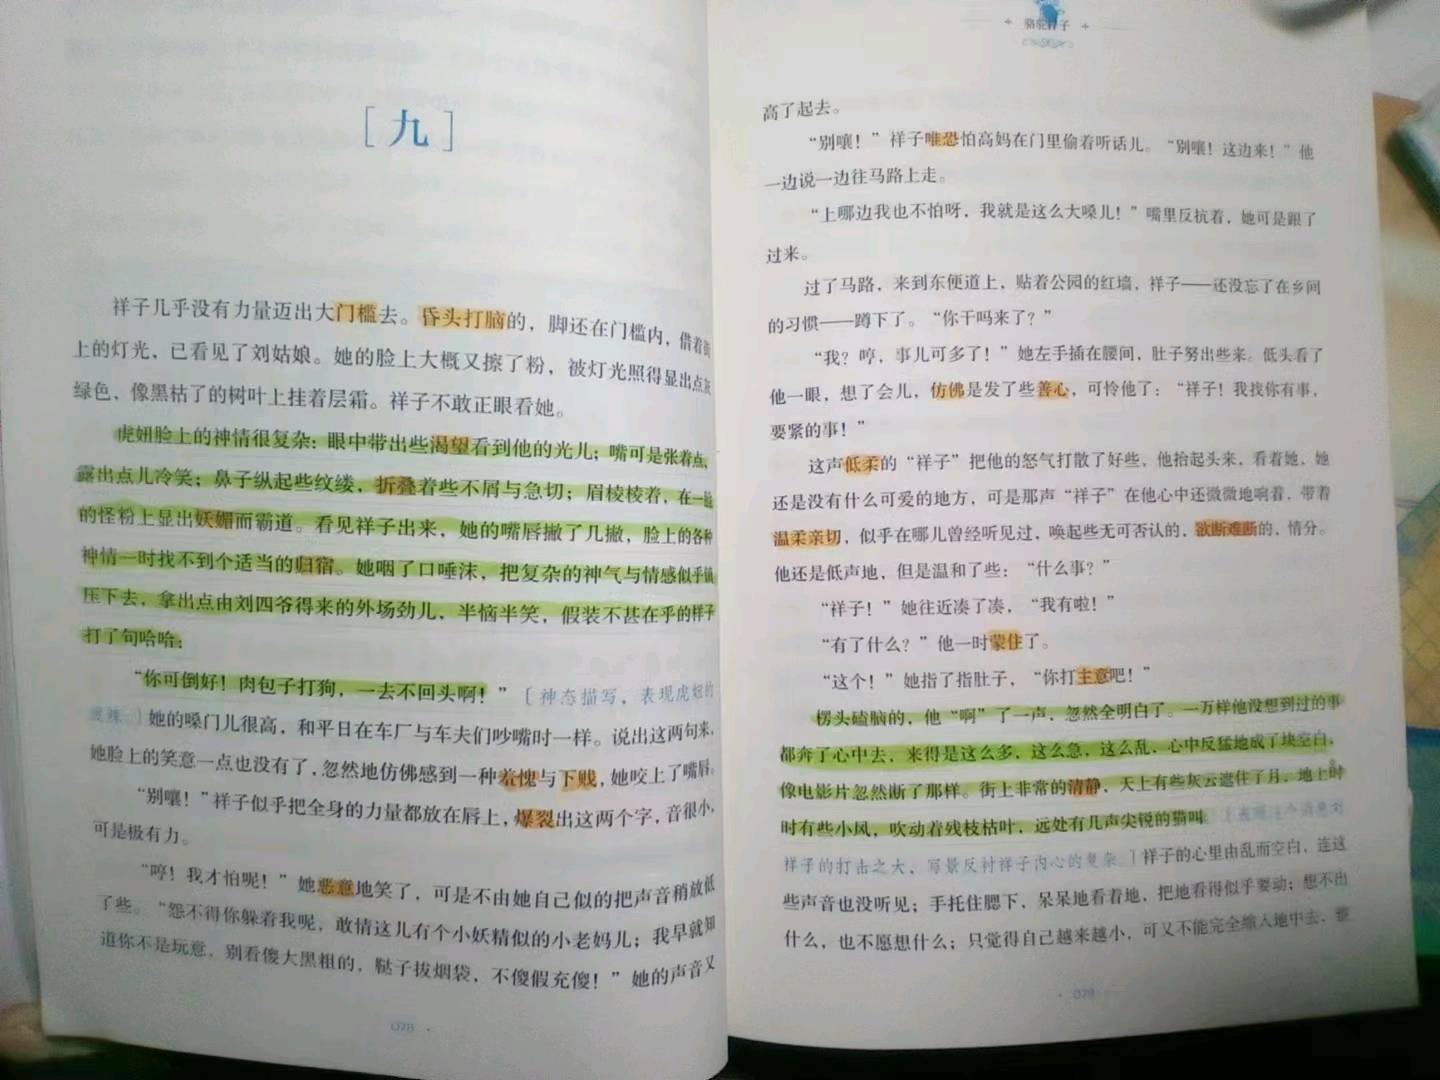 [九]
祥子几乎没有力量迈出大门槛去。昏头打脑的，脚还在门槛内，借着街
上的灯光，已看见了刘姑娘。她的脸上大概又擦了粉，被灯光照得显出点灰
绿色，像黑枯了的树叶上挂着层霜。祥子不敢正眼看她。
虎妞脸上的神情很复杂：眼中带出些渴望看到他的光儿；嘴可是张着点，
露出点儿冷笑；鼻子纵起些纹缕，折叠着些不屑与急切；眉棱棱着，在一脸
的怪粉上显出妖媚而霸道。看见祥子出来，她的嘴唇撇了几撇，脸上的各种
神情一时找不到个适当的归宿。她咽了口唾沫，把复杂的神气与情感似乎镇
压下去，拿出点由刘四爷得来的外场劲儿，半恼半笑，假装不甚在乎的样子
打了句哈哈：
“你可倒好！肉包子打狗，一去不回头啊！”［神态描写，表现虎妞的
］她的嗓门儿很高，和平日在车厂与车夫们吵嘴时一样。说出这两句来，
她脸上的笑意一点也没有了，忽然地仿佛感到一种羞愧与下贱，她咬上了嘴唇。
“别嚷！”祥子似乎把全身的力量都放在唇上，爆裂出这两个字，音很小，
可是极有力。
“哼！我才怕呢！”她恶意地笑了，可是不由她自己似的把声音稍放低
了些。“怨不得你躲着我呢，敢情这儿有个小妖精似的小老妈儿；我早就知
道你不是玩意，别看傻大黑粗的，鞑子拔烟袋，不傻假充傻！”她的声音又
078 ·
骆驼祥子
高了起去。
“别嚷！”祥子唯恐怕高妈在门里偷着听话儿。“别嚷！这边来！”他
一边说一边往马路上走。
“上哪边我也不怕呀，我就是这么大嗓儿！”嘴里反抗着，她可是跟了
过来。
过了马路，来到东便道上，贴着公园的红墙，祥子——还没忘了在乡间
的习惯——蹲下了。“你干吗来了？”
“我？哼，事儿可多了！”她左手插在腰间，肚子努出些来。低头看了
他一眼，想了会儿，仿佛是发了些善心，可怜他了：“祥子！我找你有事，
要紧的事！”
这声低柔的“祥子”把他的怒气打散了好些，他抬起头来，看着她，她
还是没有什么可爱的地方，可是那声“祥子”在他心中还微微地响着，带着
温柔亲切，似乎在哪儿曾经听见过，唤起些无可否认的，欲断难断的，情分。
他还是低声地，但是温和了些：“什么事？”
“祥子！”她往近凑了凑，“我有啦！”
“有了什么？”他一时蒙住了。
“这个！”她指了指肚子，“你打主意吧！”
楞头磕脑的，他“啊”了一声，忽然全明白了。一万样他没想到过的事
都奔了心中去，来得是这么多，这么急，这么乱，心中反猛地成了块空白，
像电影片忽然断了那样。街上非常的清静，天上有些灰云遮住了月，地上时
时有些小风，吹动着残枝枯叶，远处有几声尖锐的猫叫［
祥子的打击之大，写景反衬祥子内心的复杂。］祥子的心里由乱而空白，连这
些声音也没听见；手托住腮下，呆呆地看着地，把地看得似乎要动；想不出
什么，也不愿想什么；只觉得自己越来越小，可又不能完全缩入地中去，整
· 079